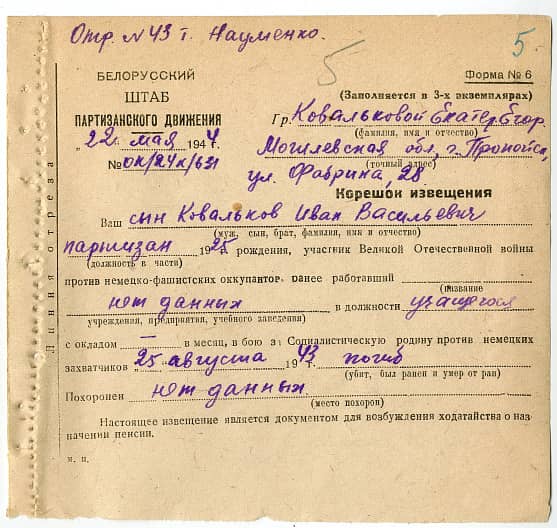 Отр. N 43 т. Науменко.
5 5
БЕЛОРУССКИЙ
ШТАБ
ПАРТИЗАНСКОГО ДВИЖЕНИЯ
„22" мая 1944
№ ок/24к/631
Форма № 6
(Заполняется в 3-х экземплярах)
Гр. Ковальковой Екатер Егор
(фамилия, имя и отчество)
Могилевская обл, г. Пропойск
(точный адрес)
ул. Фабрична, 28
Корешок извещения
Линия отреза
Ваш сын Ковальков Иван Васильевич
(муж, сын, брат, фамилия, имя и отчество)
партизан 1925 рождения, участник Великой Отечественной войны
(должность в части)
против немецко-фашистских оккупантов. ранее работавший
(название
нет данных в должности учащегося
учреждения, предприятия, учебного заведения)
с окладом — в месяц, в бою за Социалистическую родину против немецких
захватчиков 25 августа 1943 г. погиб
(убит, был ранен и умер от ран)
Похоронен нет данных
(место похорон)
Настоящее извещение является документом для возбуждения ходатайства о наз-
начении пенсии.
м. п.